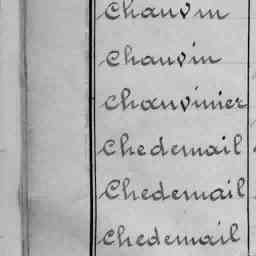 Chauvin
Chauvin
Chauvinier
Chedemail
Chedemail
Chedemail